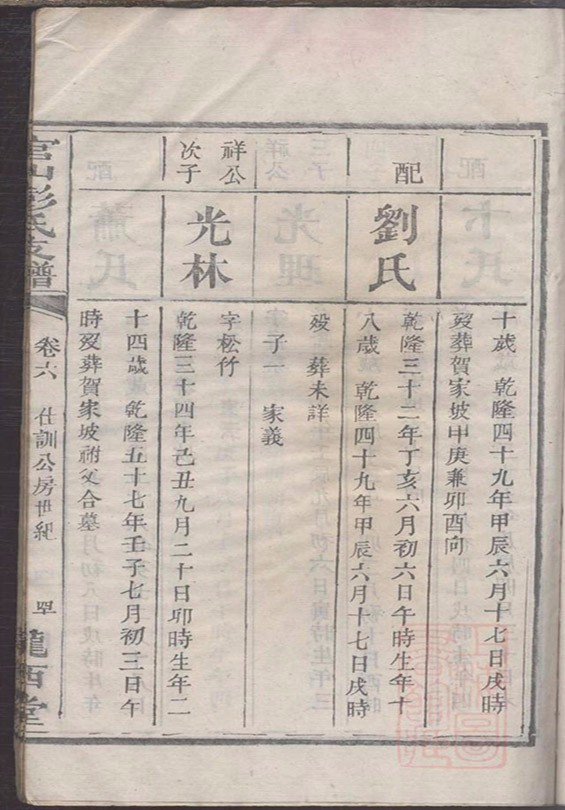 十歲 乾隆四十九年甲辰六月十七日戌時
歿葬賀家坡甲庚兼卯酉向
配
劉氏
乾隆三十二年丁亥六月初六日午時生年十
八歲 乾隆四十九年甲辰六月十七日戌時
歿 葬未詳
子一 家義
祥公
次子
光林
字松竹
乾隆三十四年己丑九月二十日卯時生年二
十四歲 乾隆五十七年壬子七月初三日午
時歿葬賀家坡祔父合墓
官山彭氏支譜
卷六 仕訓公房世紀
隴西堂